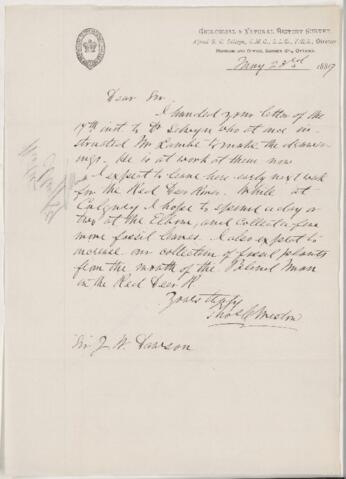 GEOLOGICAL & NATURAL HISTORY SURVEY.
Alfred R. C. Selwyn, C.M.G., L.L.D., F.R.S., Director
MUSEUM AND OFFICE, SUSSEX ST., OTTAWA.
May 23rd 1889
Dear Sir,
I handed your letter of the
17th inst to Dr Selwyn who at once in-
structed Mr Lambe to make the draw-
ings. He is at work at them now
I expect to leave here early next week
for the Red Deer River. While at
Calgary I hope to spend a day or
two at the Elbow, and collect a few
more fossil leaves. I also expect to
increase our collection of fossil plants
from the mouth of the Blind Man
in the Red Deer R.
Yours truly
Thos C Weston
Sir J. W. Dawson